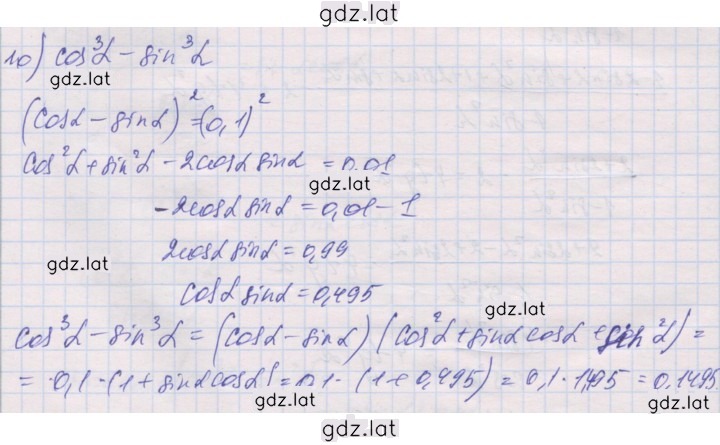 gdz.lat
10) cos³α – sin³α
gdz.lat
(cosα – sinα)² = (0,1)²
cos²α + sin²α – 2cosα sinα = 0.01
gdz.lat
–2cosα sinα = 0,01 – 1
2cosα sinα = 0,99
gdz.lat
cosα sinα = 0,495
gdz.lat
cos³α – sin³α = (cosα – sinα) (cos²α + sinα cosα + sin²α) =
= 0,1 · (1 + sinα cosα) = 0.1 · (1 + 0,495) = 0,1 · 1,495 = 0,1495
gdz.lat
gdz.lat
gdz.lat